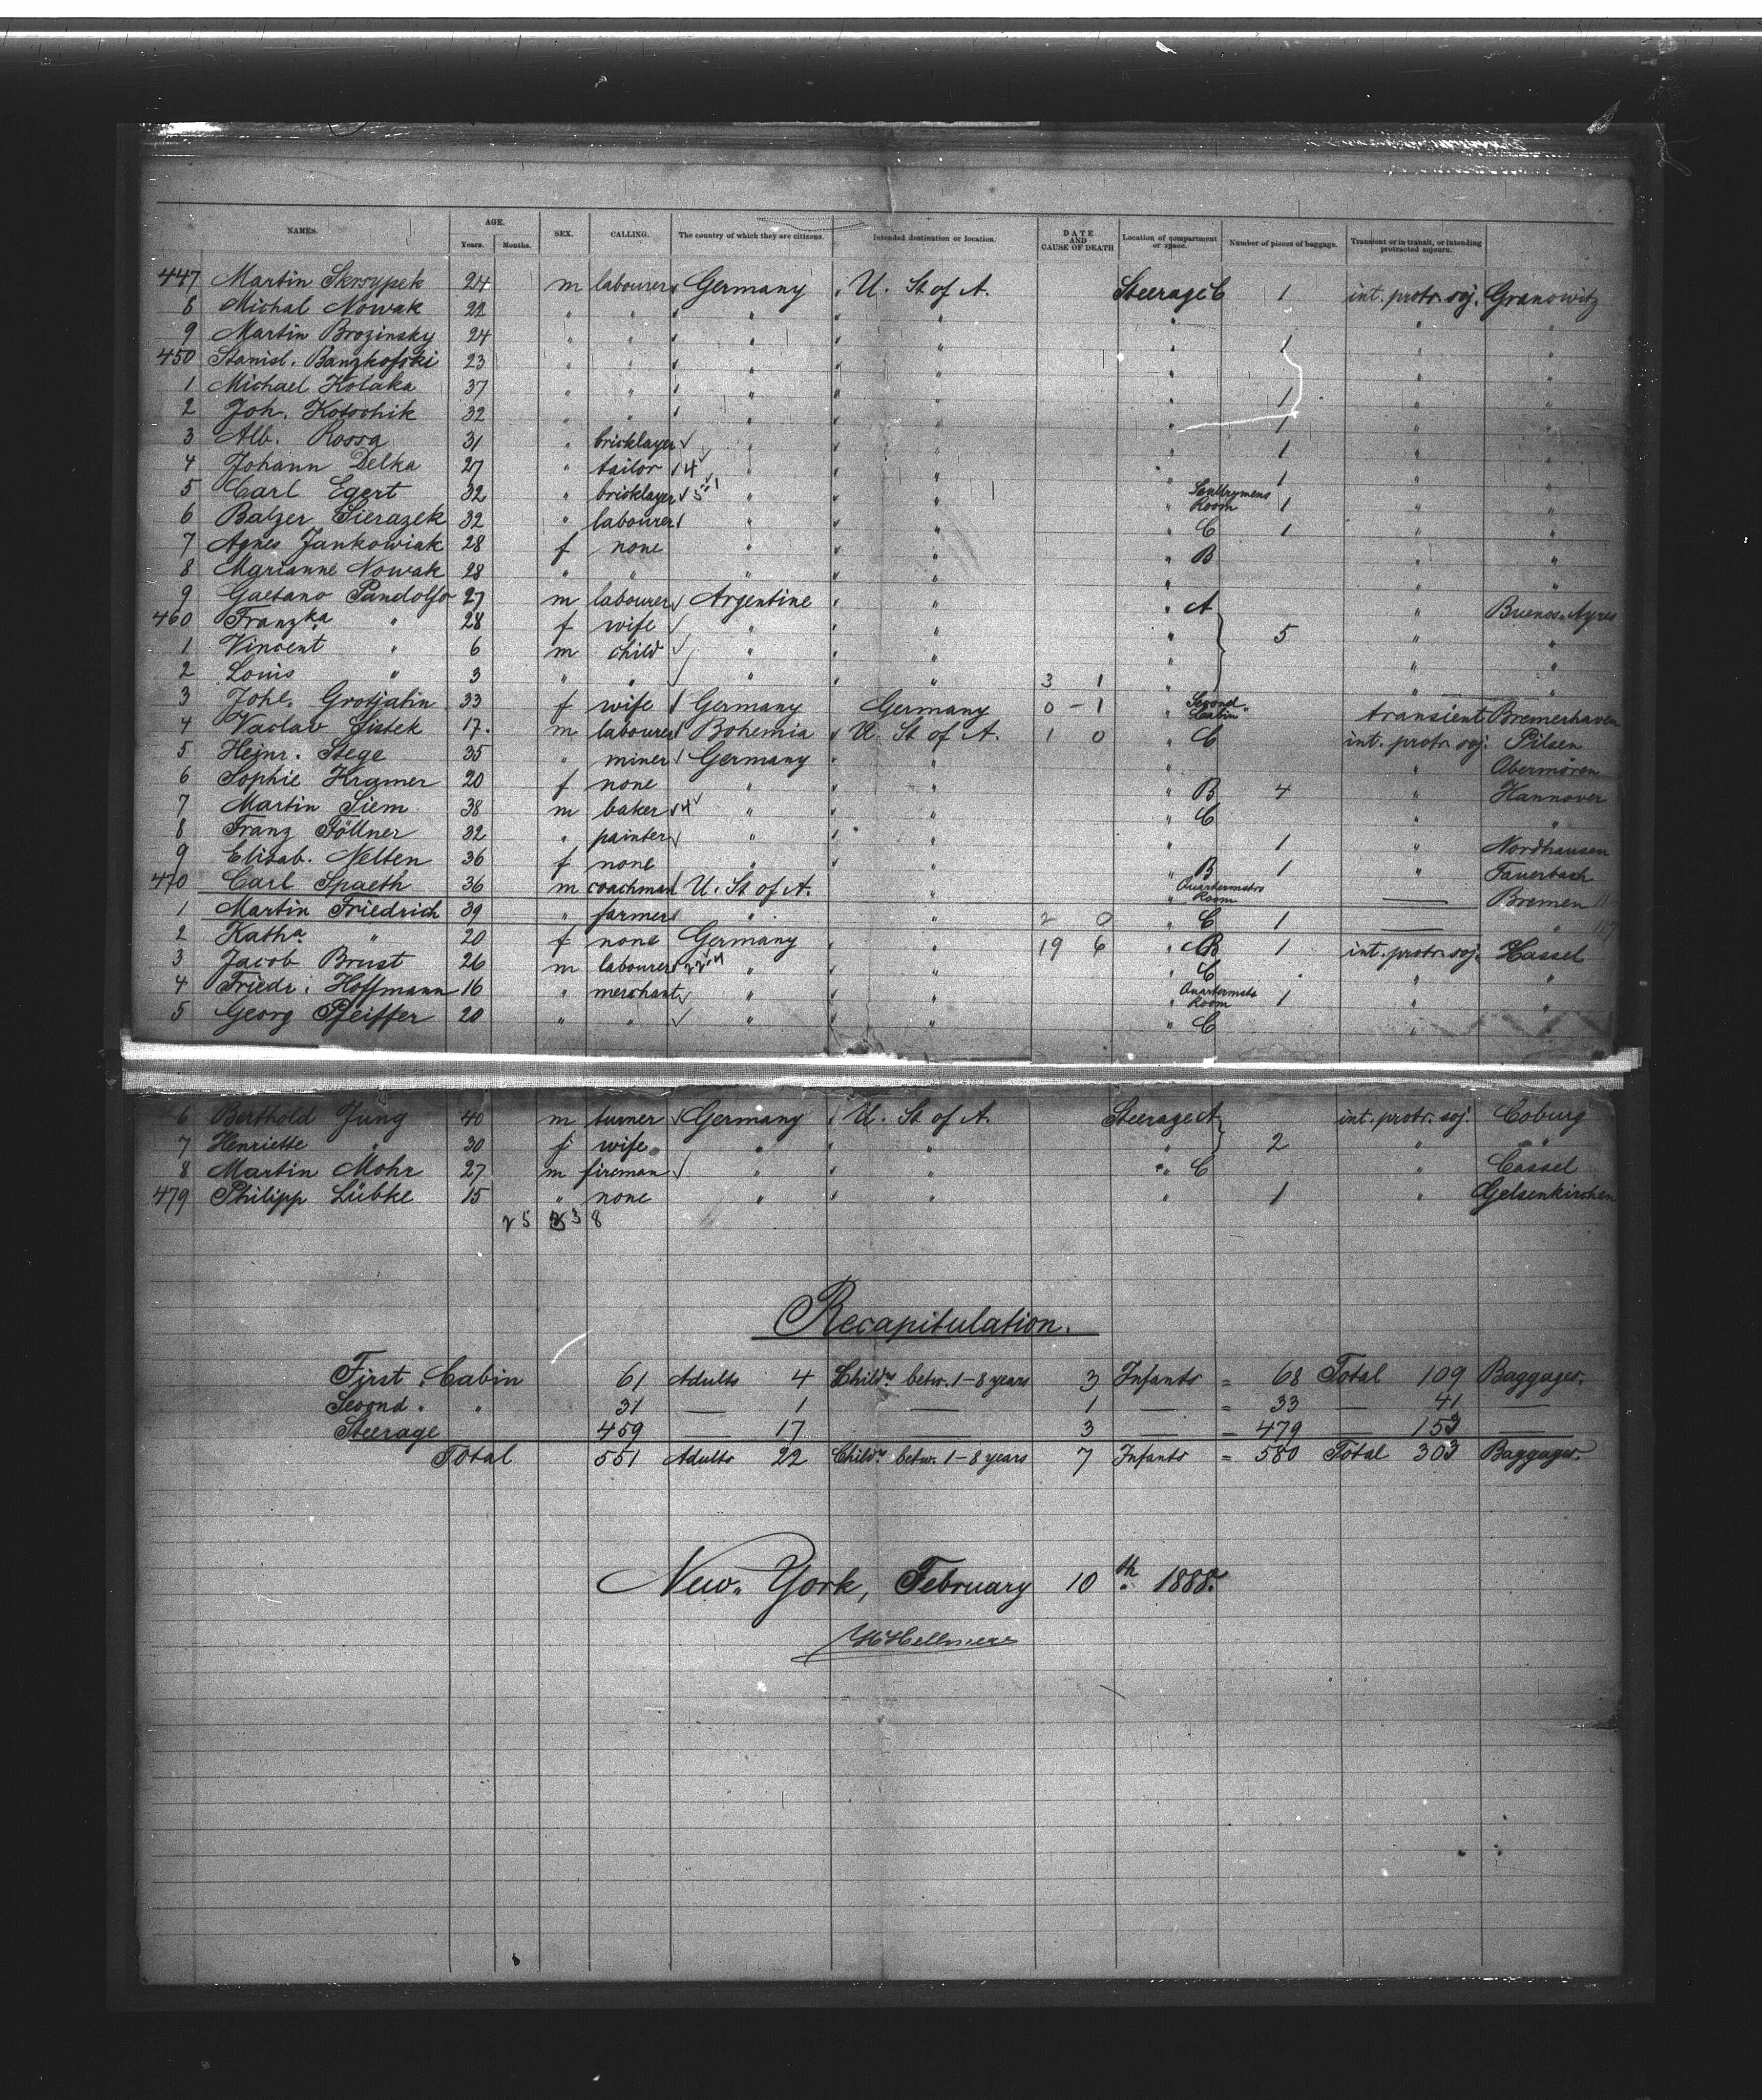 NAMES. AGE. Years. Months. SEX. CALLING. The country of which they are citizens. Intended destination or location. DATE AND CAUSE OF DEATH Location of compartment or space. Number of pieces of baggage. Transient or in transit, or intending protracted sojourn.
447 Martin Skrzypek 24 m labourer Germany U. St of A. Steerage C 1 int. protr. soj. Granowitz
8 Michal Nowak 22 " " " " " " "
9 Martin Brozinsky 24 " " " " " 1 " "
450 Stanisl. Banzkofski 23 " " " " " " "
1 Michael Kolaka 37 " " " " " 1 " "
2 Joh. Kotschik 32 " " " " " 1 " "
3 Alb. Rossa 31 " bricklayer " " " 1 " "
4 Johann Delka 27 " tailor 4 " " " 1 " "
5 Carl Egert 32 " bricklayer " " " Room 1 " "
6 Balzer Sierazek 32 " labourer " " " C 1 " "
7 Agnes Jankowiak 28 f none " " " B " "
8 Marianne Nowak 28 " " " " " " "
9 Gaetano Pandolfo 27 m labourer Argentine " " A " Buenos-Ayres
460 Franzka " 28 f wife " " " 5 " "
1 Vincent " 6 m child " " " " "
2 Louis " 3 " " " " 3 1 " " "
3 Johe. Grotjahn 33 f wife Germany Germany 0-1 " Second Cabin transient Bremerhaven
4 Vaclav Sistek 17. m labourer Bohemia U. St of A. 1 0 " C int. protr. soj. Pilsen
5 Heinr. Stege 35 " miner Germany " " " Obermören
6 Sophie Kramer 20 f none " " " B 4 " Hannover
7 Martin Siem 38 m baker 4 " " " C " "
8 Franz Föllner 32 " painter " " " 1 " Nordhausen
9 Elisab. Nelten 36 f none " " " B 1 " Fauerbach
470 Carl Spaeth 36 m coachman U. St of A. " " Quartermstrs Room — Bremen
1 Martin Friedrich 39 " farmer " " 2 0 " C 1 — "
2 Katha " 20 f none Germany " 19 6 " B 1 int. protr. soj. Kassel
3 Jacob Brust 26 m labourer " " " C " "
4 Friedr. Hoffmann 16 " merchant " " " Quartermstrs Room 1 " "
5 Georg Pfeiffer 20 " " " " " C " "
6 Berthold Jung 40 m turner Germany U. St of A. Steerage A int. protr. soj. Coburg
7 Henriette " 30 f wife " " " 2 " "
8 Martin Mohr 27 m fireman " " " C " Cassel
479 Philipp Lübke 15 " none " " " 1 " Gelsenkirchen
Recapitulation.
First Cabin 61 Adults 4 Childn betw. 1-8 years 3 Infants = 68 Total 109 Baggages.
Second " 31 — 1 — 1 — = 33 — 41 —
Steerage 459 — 17 — 3 — = 479 153 —
Total 551 Adults 22 Childn betw. 1-8 years 7 Infants = 580 Total 303 Baggages.
New-York, February 10th 1888.
H Hellmers